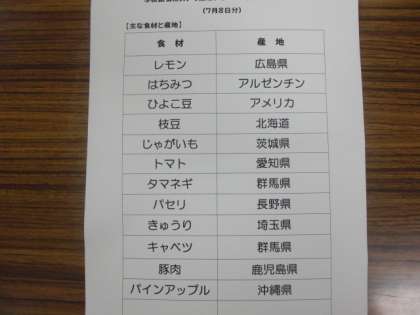 (7月8日分)
【主な食材と産地】
食材 産地
レモン 広島県
はちみつ アルゼンチン
ひよこ豆 アメリカ
枝豆 北海道
じゃがいも 茨城県
トマト 愛知県
タマネギ 群馬県
パセリ 長野県
きゅうり 埼玉県
キャベツ 群馬県
豚肉 鹿児島県
パインアップル 沖縄県